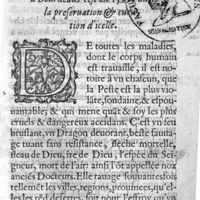 la preseruation & cura-
tion d'icelle.
DE toutes les maladies,
dont le corps humain
est trauaillé, il est no-
toire à vn chascun, que
la Peste est la plus vio-
lãte, soudaine, & espou-
uantable, & qui mene quāt & soy les plus
cruels & dangereux accidans. C'est vn feu
bruslant, vn Dragon deuorant, beste sauua-
ge tuant sans resistance, flesche mortelle,
fleau de Dieu, ire de Dieu, l'espée du Sei-
gneur, mort de l'air: ainsi l'ōt appellée noz
anciēs Docteurs. Elle rauage souuantesfois
tellemēt les villes, regions, prouinces, qu'el
les redēt desertes, soit pour l'effroy qu'vn